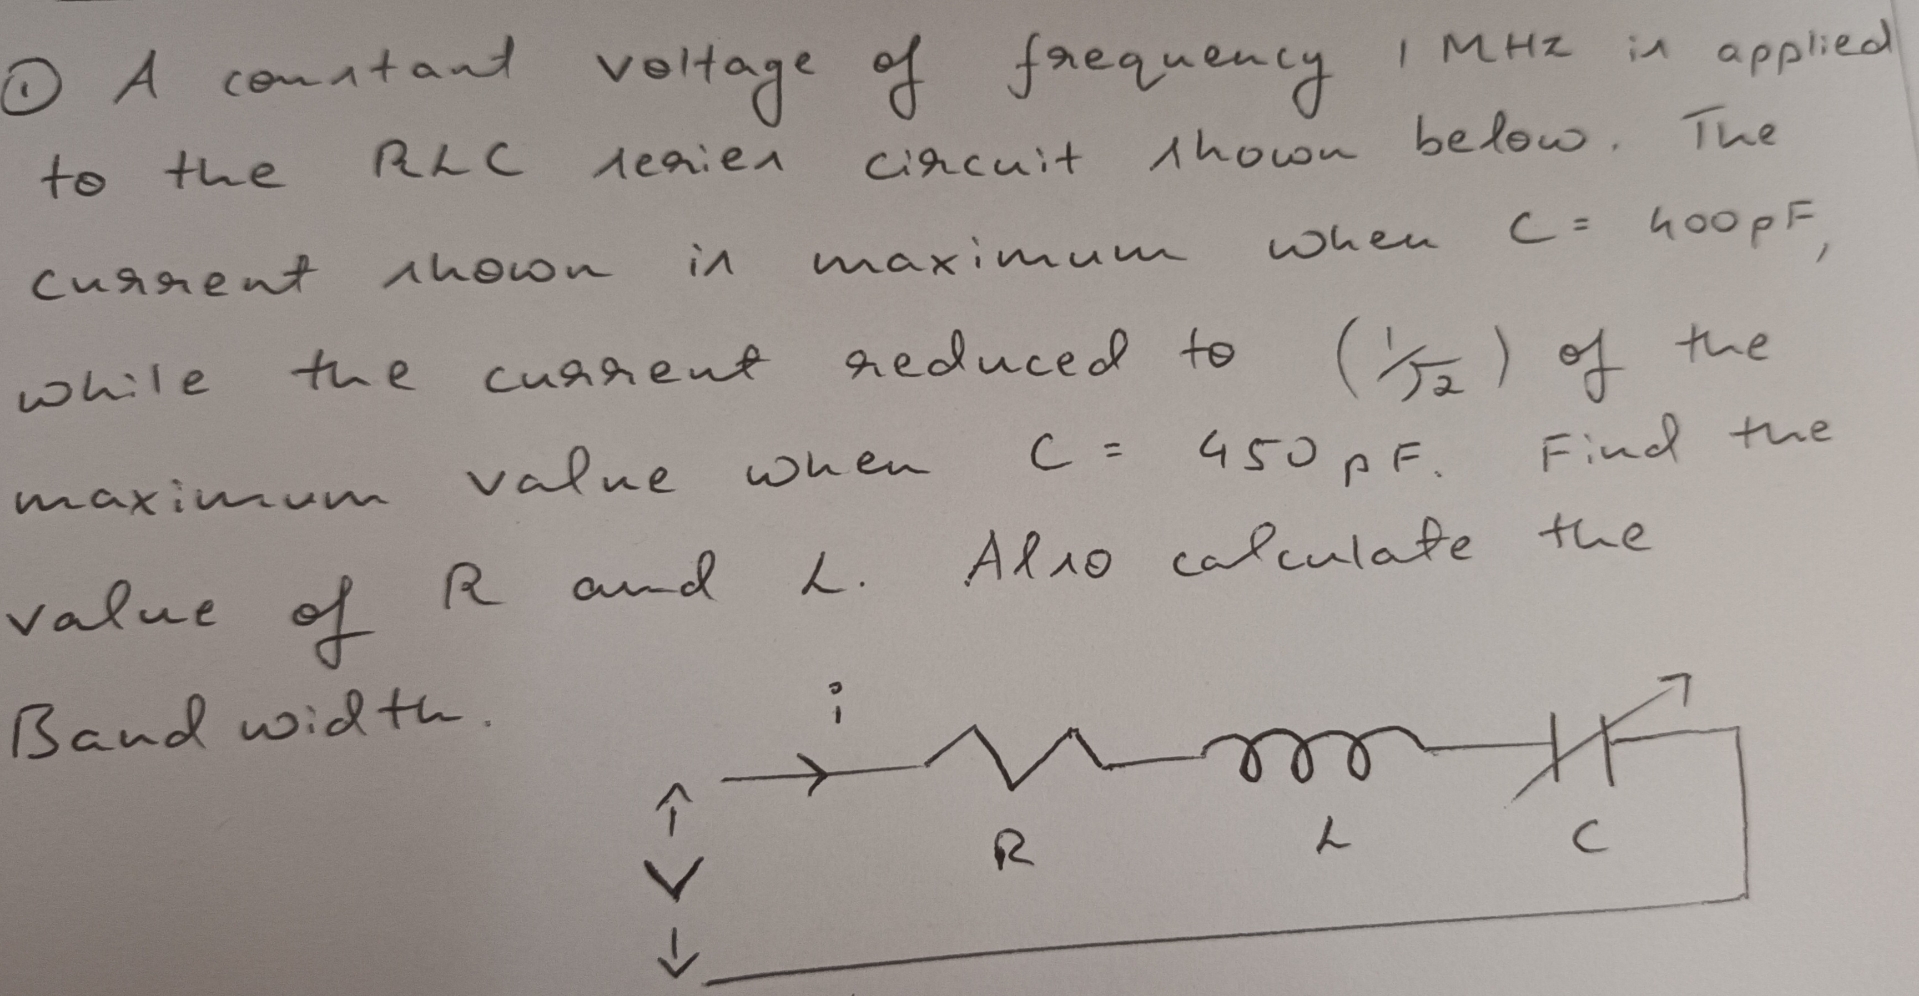 ① A constant voltage of frequency 1 MHz is applied
to the RLC series circuit shown below. The
current shown is maximum when C = 400pF,
while the current reduced to (1/√2) of the
maximum value when C = 450 pF. Find the
value of R and L. Also calculate the
Band width.
i
R L C
V